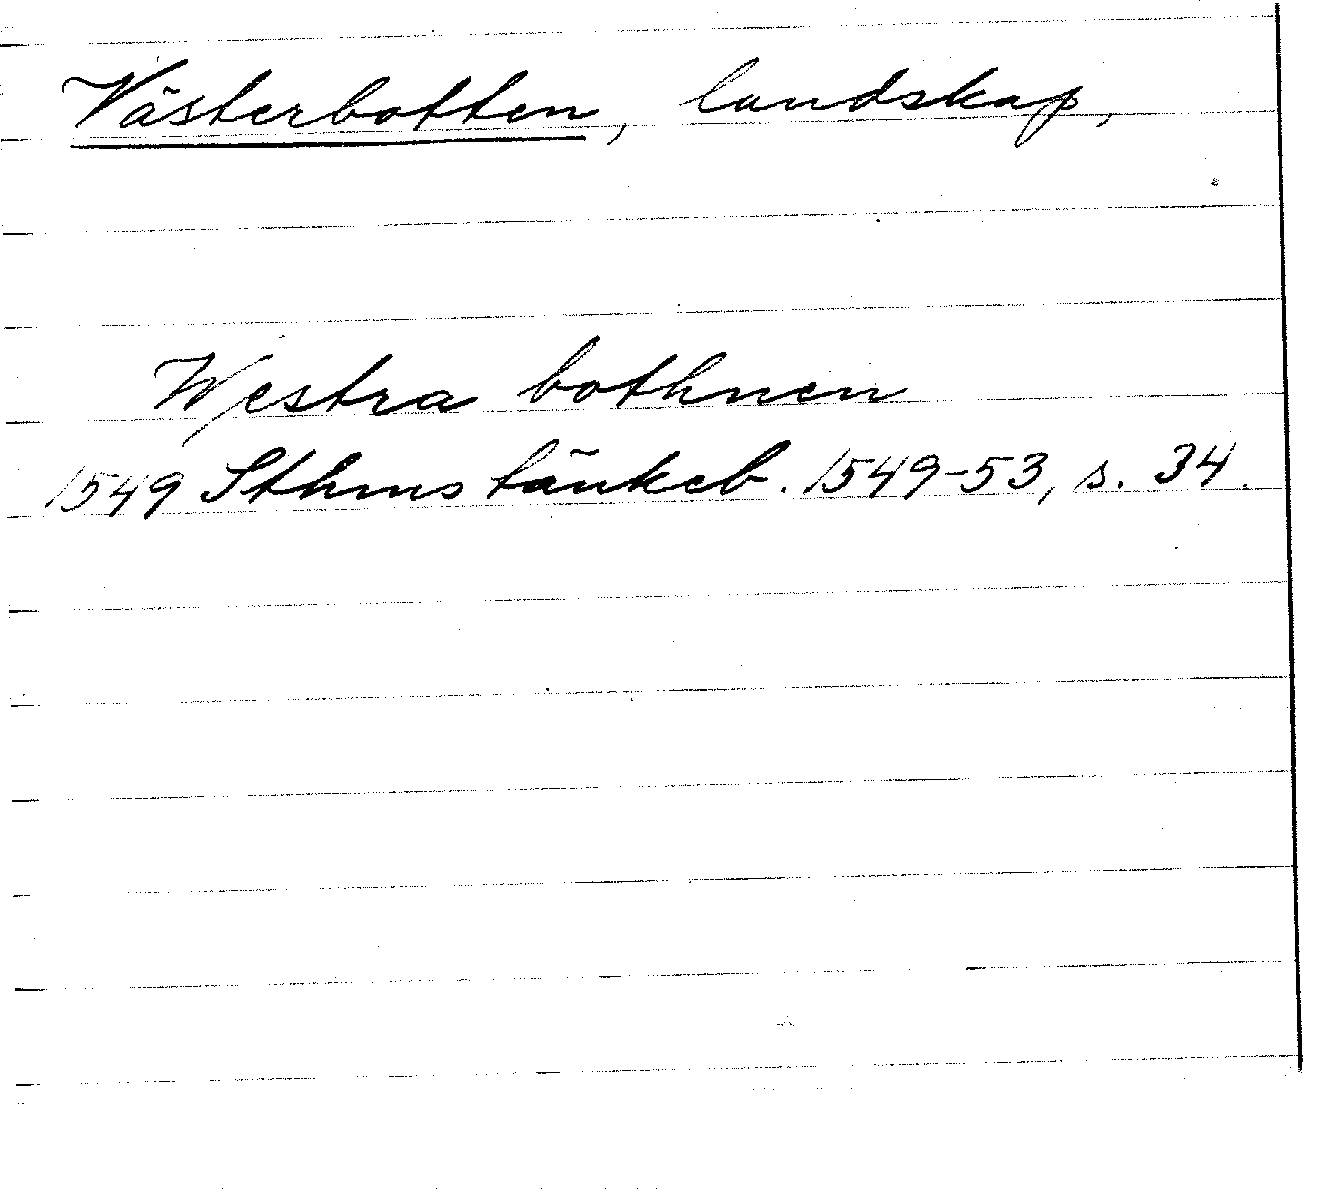 Västerbotten, landskap,
Westra bothnen
1549 Sthms tänkeb. 1549-53, s. 34.